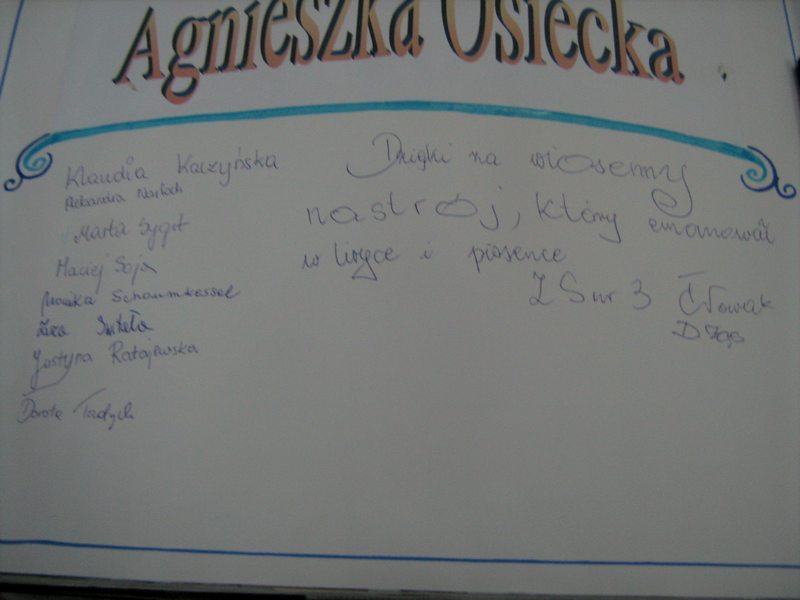 Agnieszka Osiecka
Klaudia Kaczyńska
Aleksandra
Marta Sygit
Maciej Soja
Monika Schaumkessel
Justyna Ratajewska
Dorota Tadych
Dzięki za wiosenny
nastrój, który emanował
w liryce i piosence
ZS nr 3 Nowak